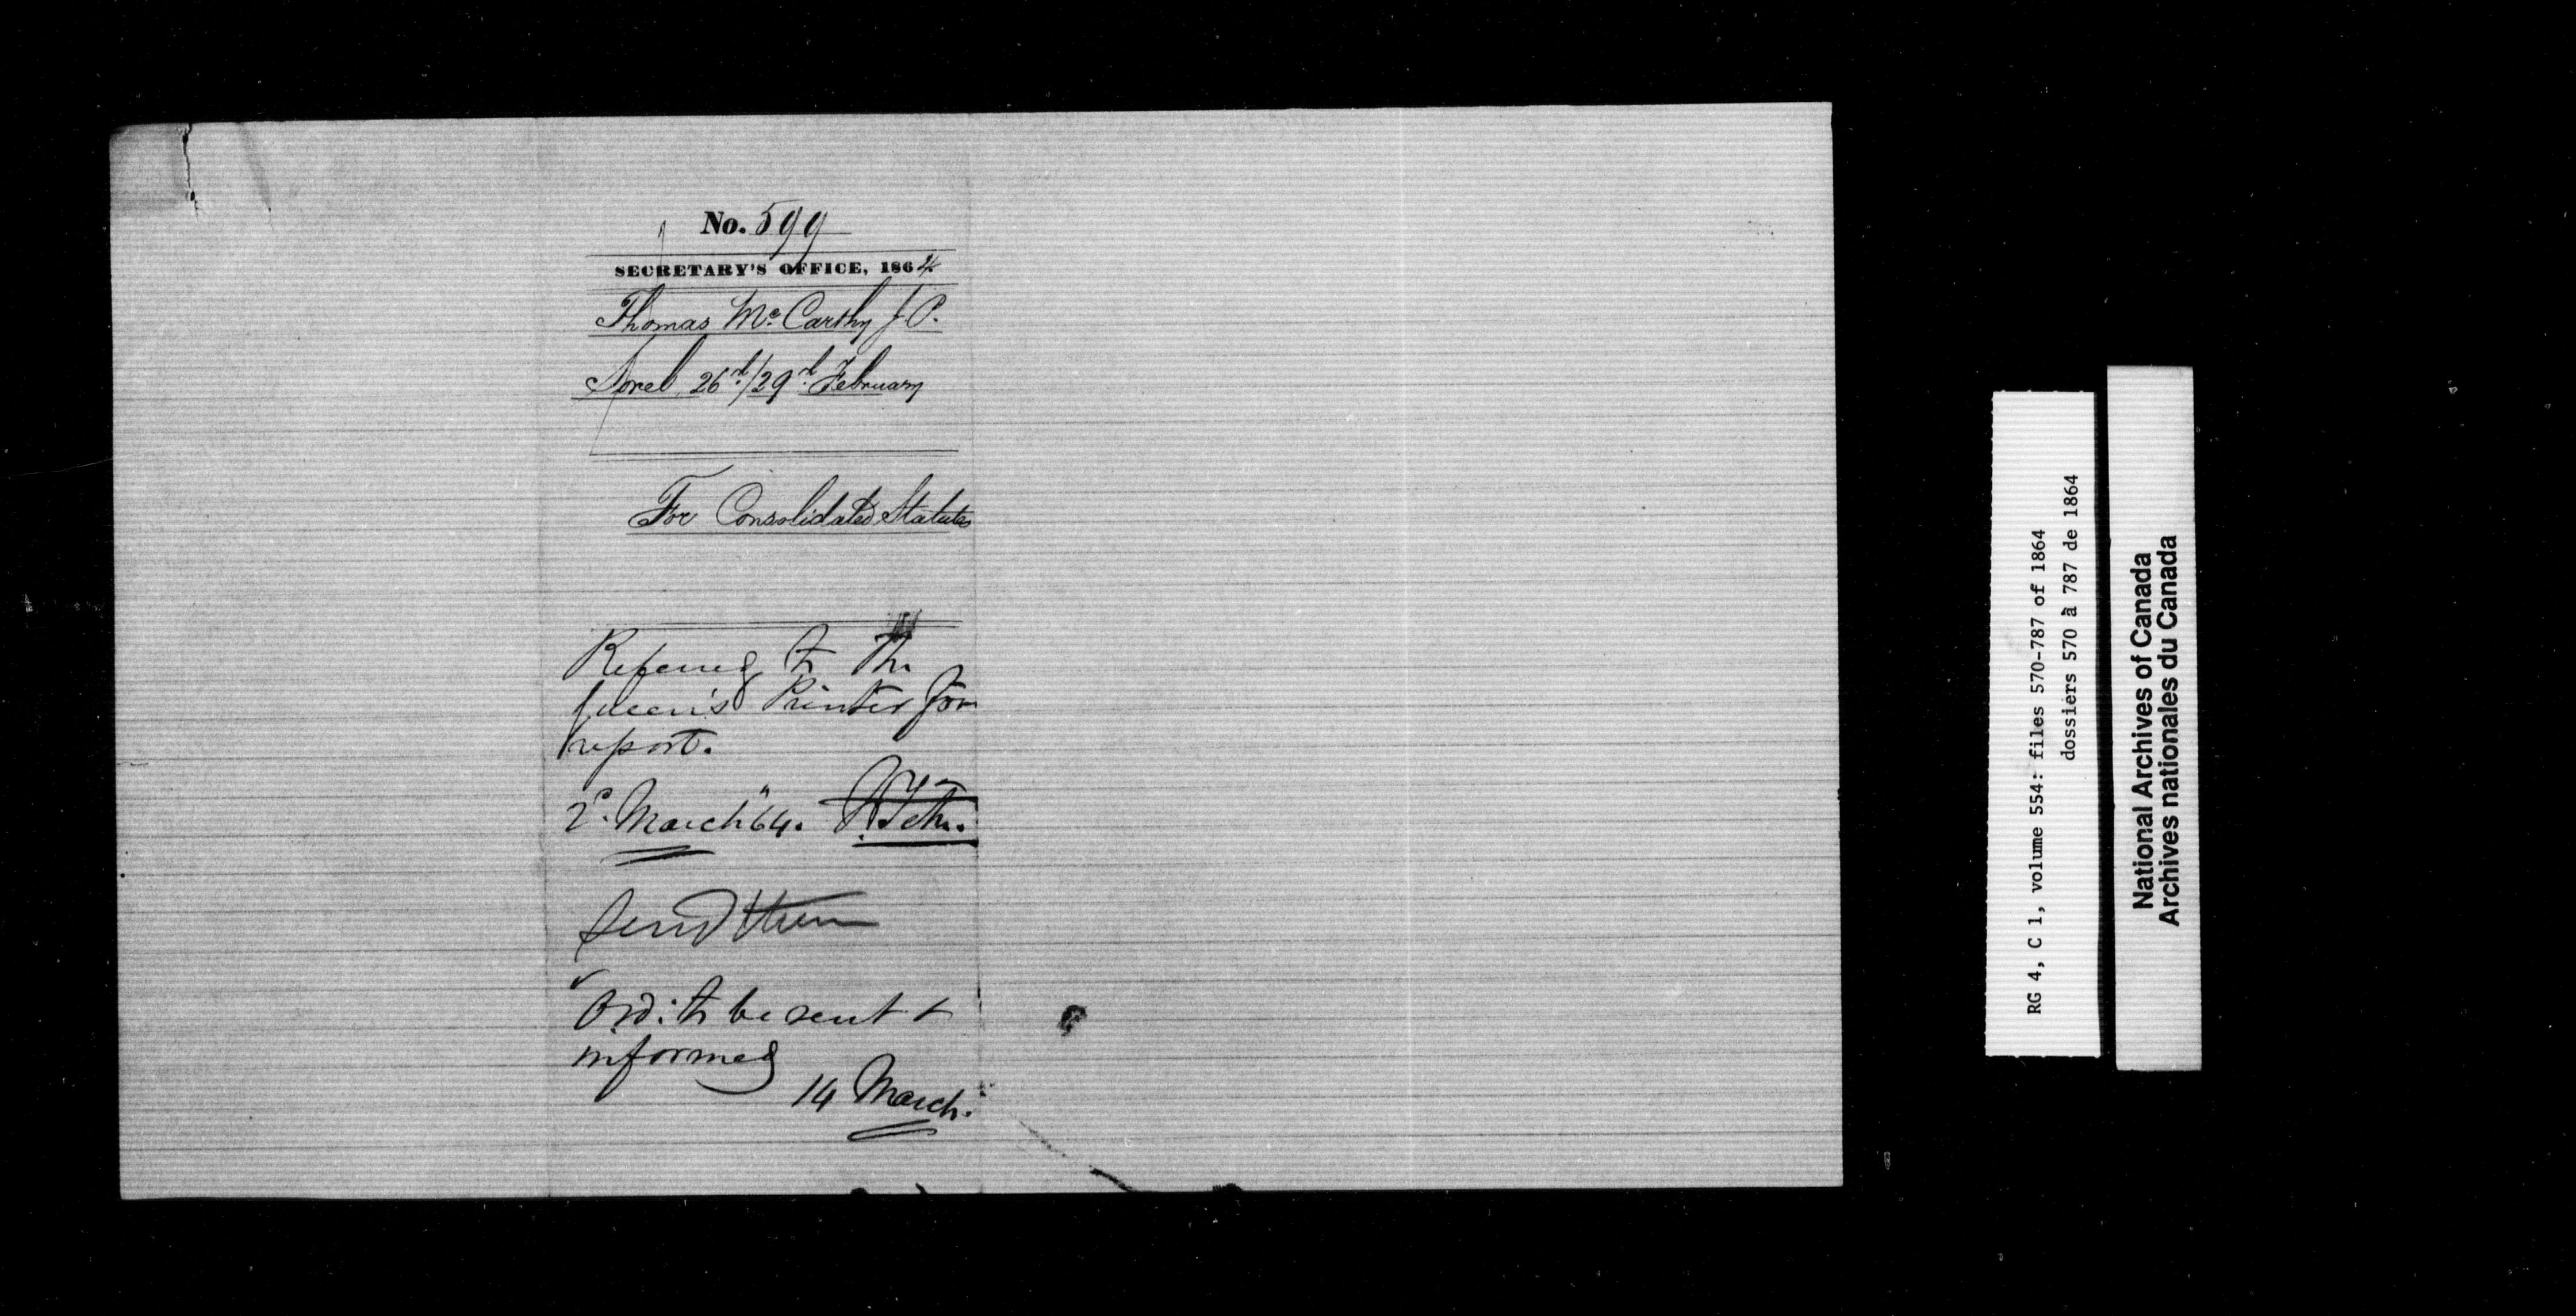 No. 599
SECRETARY'S OFFICE, 1864
Thomas McCarthy J.P.
Sorel 26th/29th February
For Consolidated Statutes
Referred to the
Queen's Printer for
report.
2d. March "64.
Send them
Ord: to be sent &
informed
14 March.
RG 4, C 1, volume 554: files 570-787 of 1864
dossiers 570 à 787 de 1864
National Archives of Canada
Archives nationales du Canada